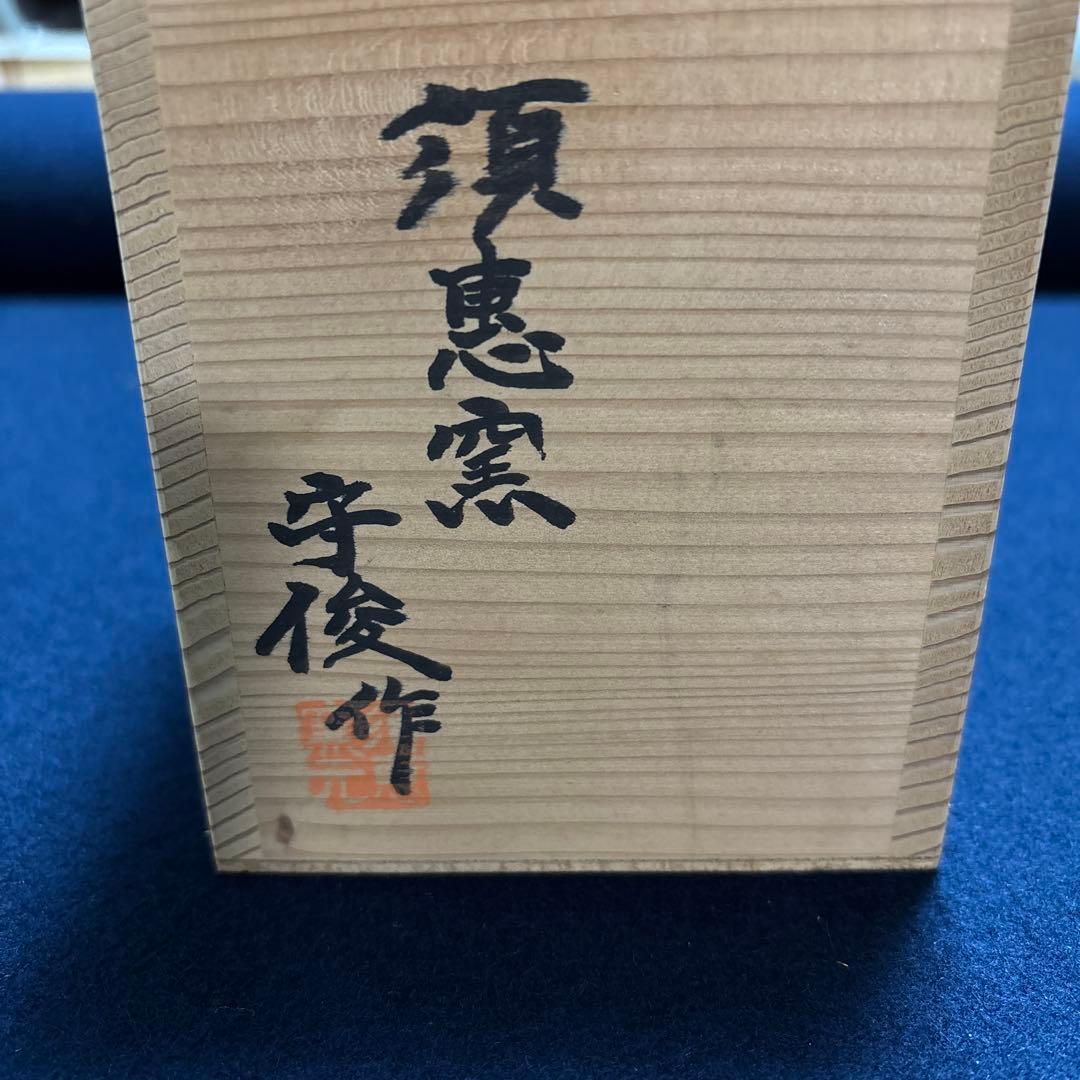 須惠窯
守俊作